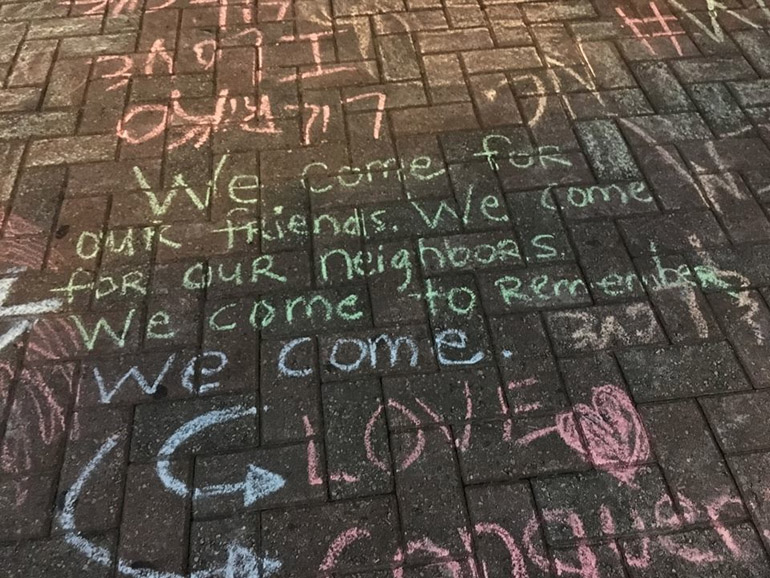 We come for
our friends. We come
for our neighbors.
We come to Remember
We come.
LOVE
conquer